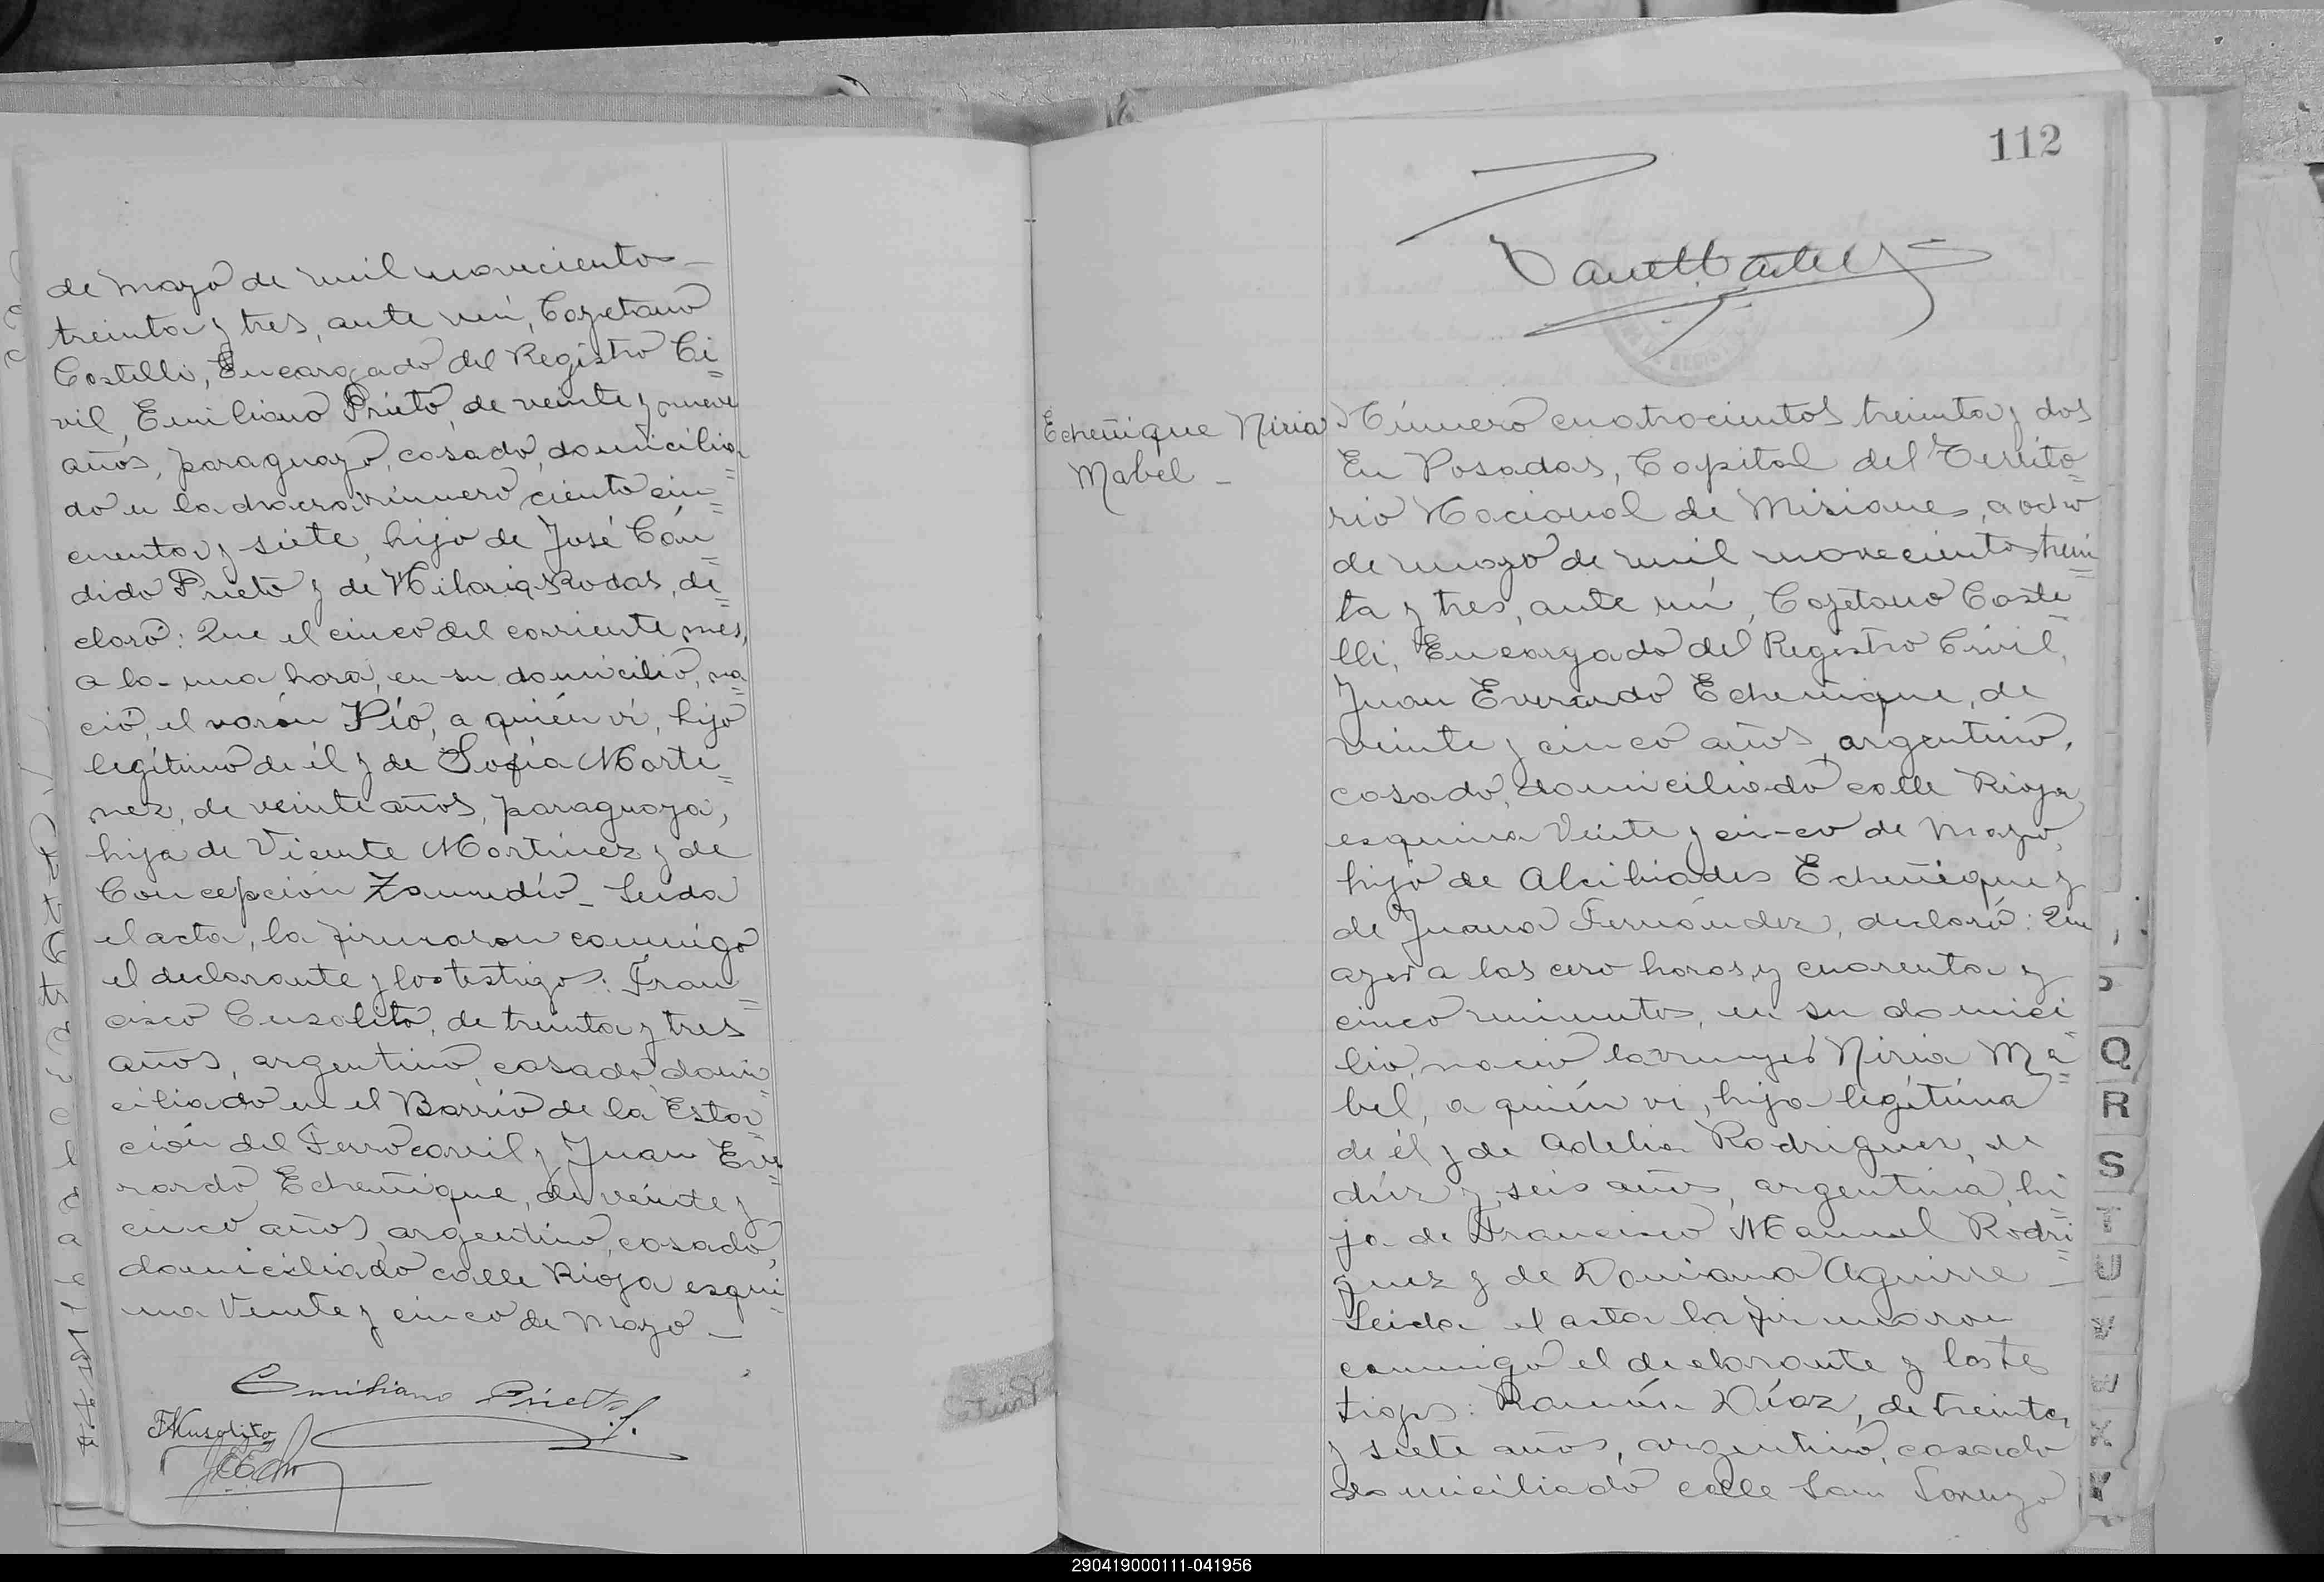 de mayo de mil novecientos
treinta y tres, ante mí, Cayetano
Castelli, Encargado del Registro Ci=
vil, Emiliano Prieto, de veinte y nueve
años, paraguayo, casado, domicilia=
do en la chacra número ciento cin=
cuenta y siete, hijo de José Cán=
dido Prieto y de Hilaria Rodas, de=
claró: Que el cinco del corriente mes,
a la una hora, en su domicilio, na=
ció, el varón Pío, a quién ví, hijo
legítimo de él y de Sofía Marti=
nez, de veinte años, paraguaya,
hija de Vicente Martínez y de
Concepción Zamudío_ Leída
el acta, la firmaron conmigo
el declarante y los testigos: Fran=
cisco Cusolito, de treinta y tres
años, argentino, casado, domi=
ciliado en el Barrio de la Esta=
ción del Ferrocarril y Juan Eve=
rardo Echeñique, de veinte y
cinco años, argentino, casado,
domiciliado calle Rioja esqui=
na Veinte y cinco de Mayo_
Emiliano Prieto
FMusolito
112
Echeñique Niria
Mabel_
Número cuatrocientos treinta y dos
En Posadas, Capital del Territo=
rio Nacional de Misiones, a ocho
de mayo de mil novecientos trein=
ta y tres, ante mí, Cayetano Caste=
lli, Encargado del Registro Civil,
Juan Everardo Echeñique, de
veinte y cinco años, argentino,
casado, domiciliado calle Rioja
esquina Veinte y cinco de Mayo,
hijo de Alcibiades Echeñique y
de Juana Fernández, declaró: Que
ayer a las cero horas y cuarenta y
cinco minutos, en su domici=
lio, nació la mujer Niria Ma=
bel, a quién ví, hija legítima
de él y de Adelia Rodriguez, de
diéz y seis años, argentina, hi=
ja de Francisco Manuel Rodri=
guez y de Damiana Aguirre_
Leida el acta la firmaron
conmigo el declarante y los tes
tigos: Ramón Díaz, de treinta
y siete años, argentino, casado
domiciliado calle San Lorenzo
Q
R
S
T
U
V
W
X
Y
290419000111-041956